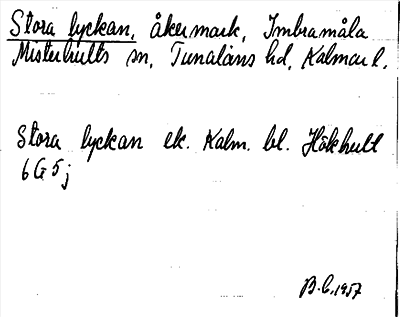 Stora lyckan, åkermark, Imbramåla
Misterhults sn, Tunaläns hd, Kalmar l.
Stora lyckan ek. Kalm. bl. Häkhult
6G5j
B.C. 1957